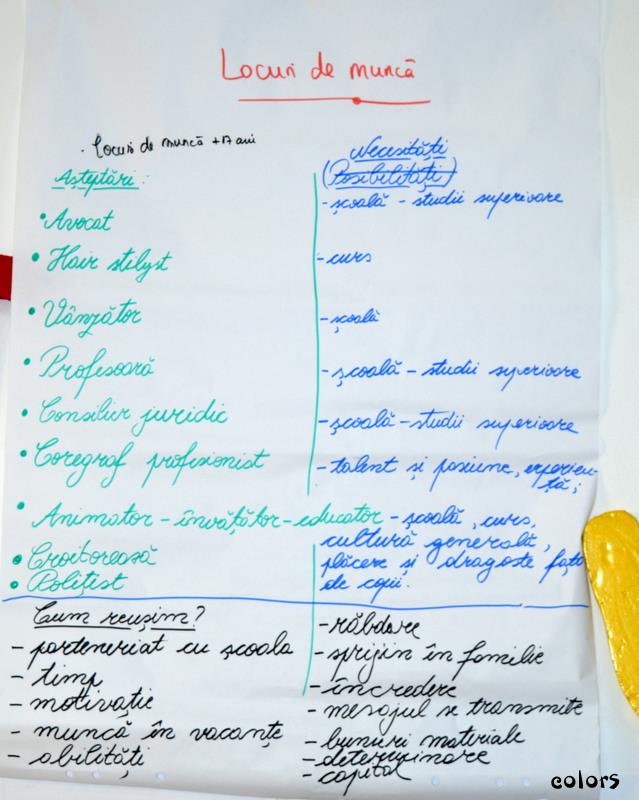 Locuri de muncă
· Locuri de muncă +17 ani
Așteptări:
Necesități
(Posibilități)
• Avocat
- școală - studii superioare
• Hair stilyst
- curs
• Vânzător
- școală
• Profesoară
- școală - studii superioare
• Consilier juridic
- școală - studii superioare
• Coregraf profesionist
- talent și pasiune, experien-
ță;
• Animator - învățător - educator - școală, curs,
cultură generală,
plăcere și dragoste față
de copii.
• Croitoreasă
• Polițist
Cum reușim?
- parteneriat cu școala
- timp
- motivație
- muncă în vacanțe
- abilități
- răbdare
- sprijin în familie
- încredere
- mesajul se transmite
- bunuri materiale
- determinare
- capital
colors